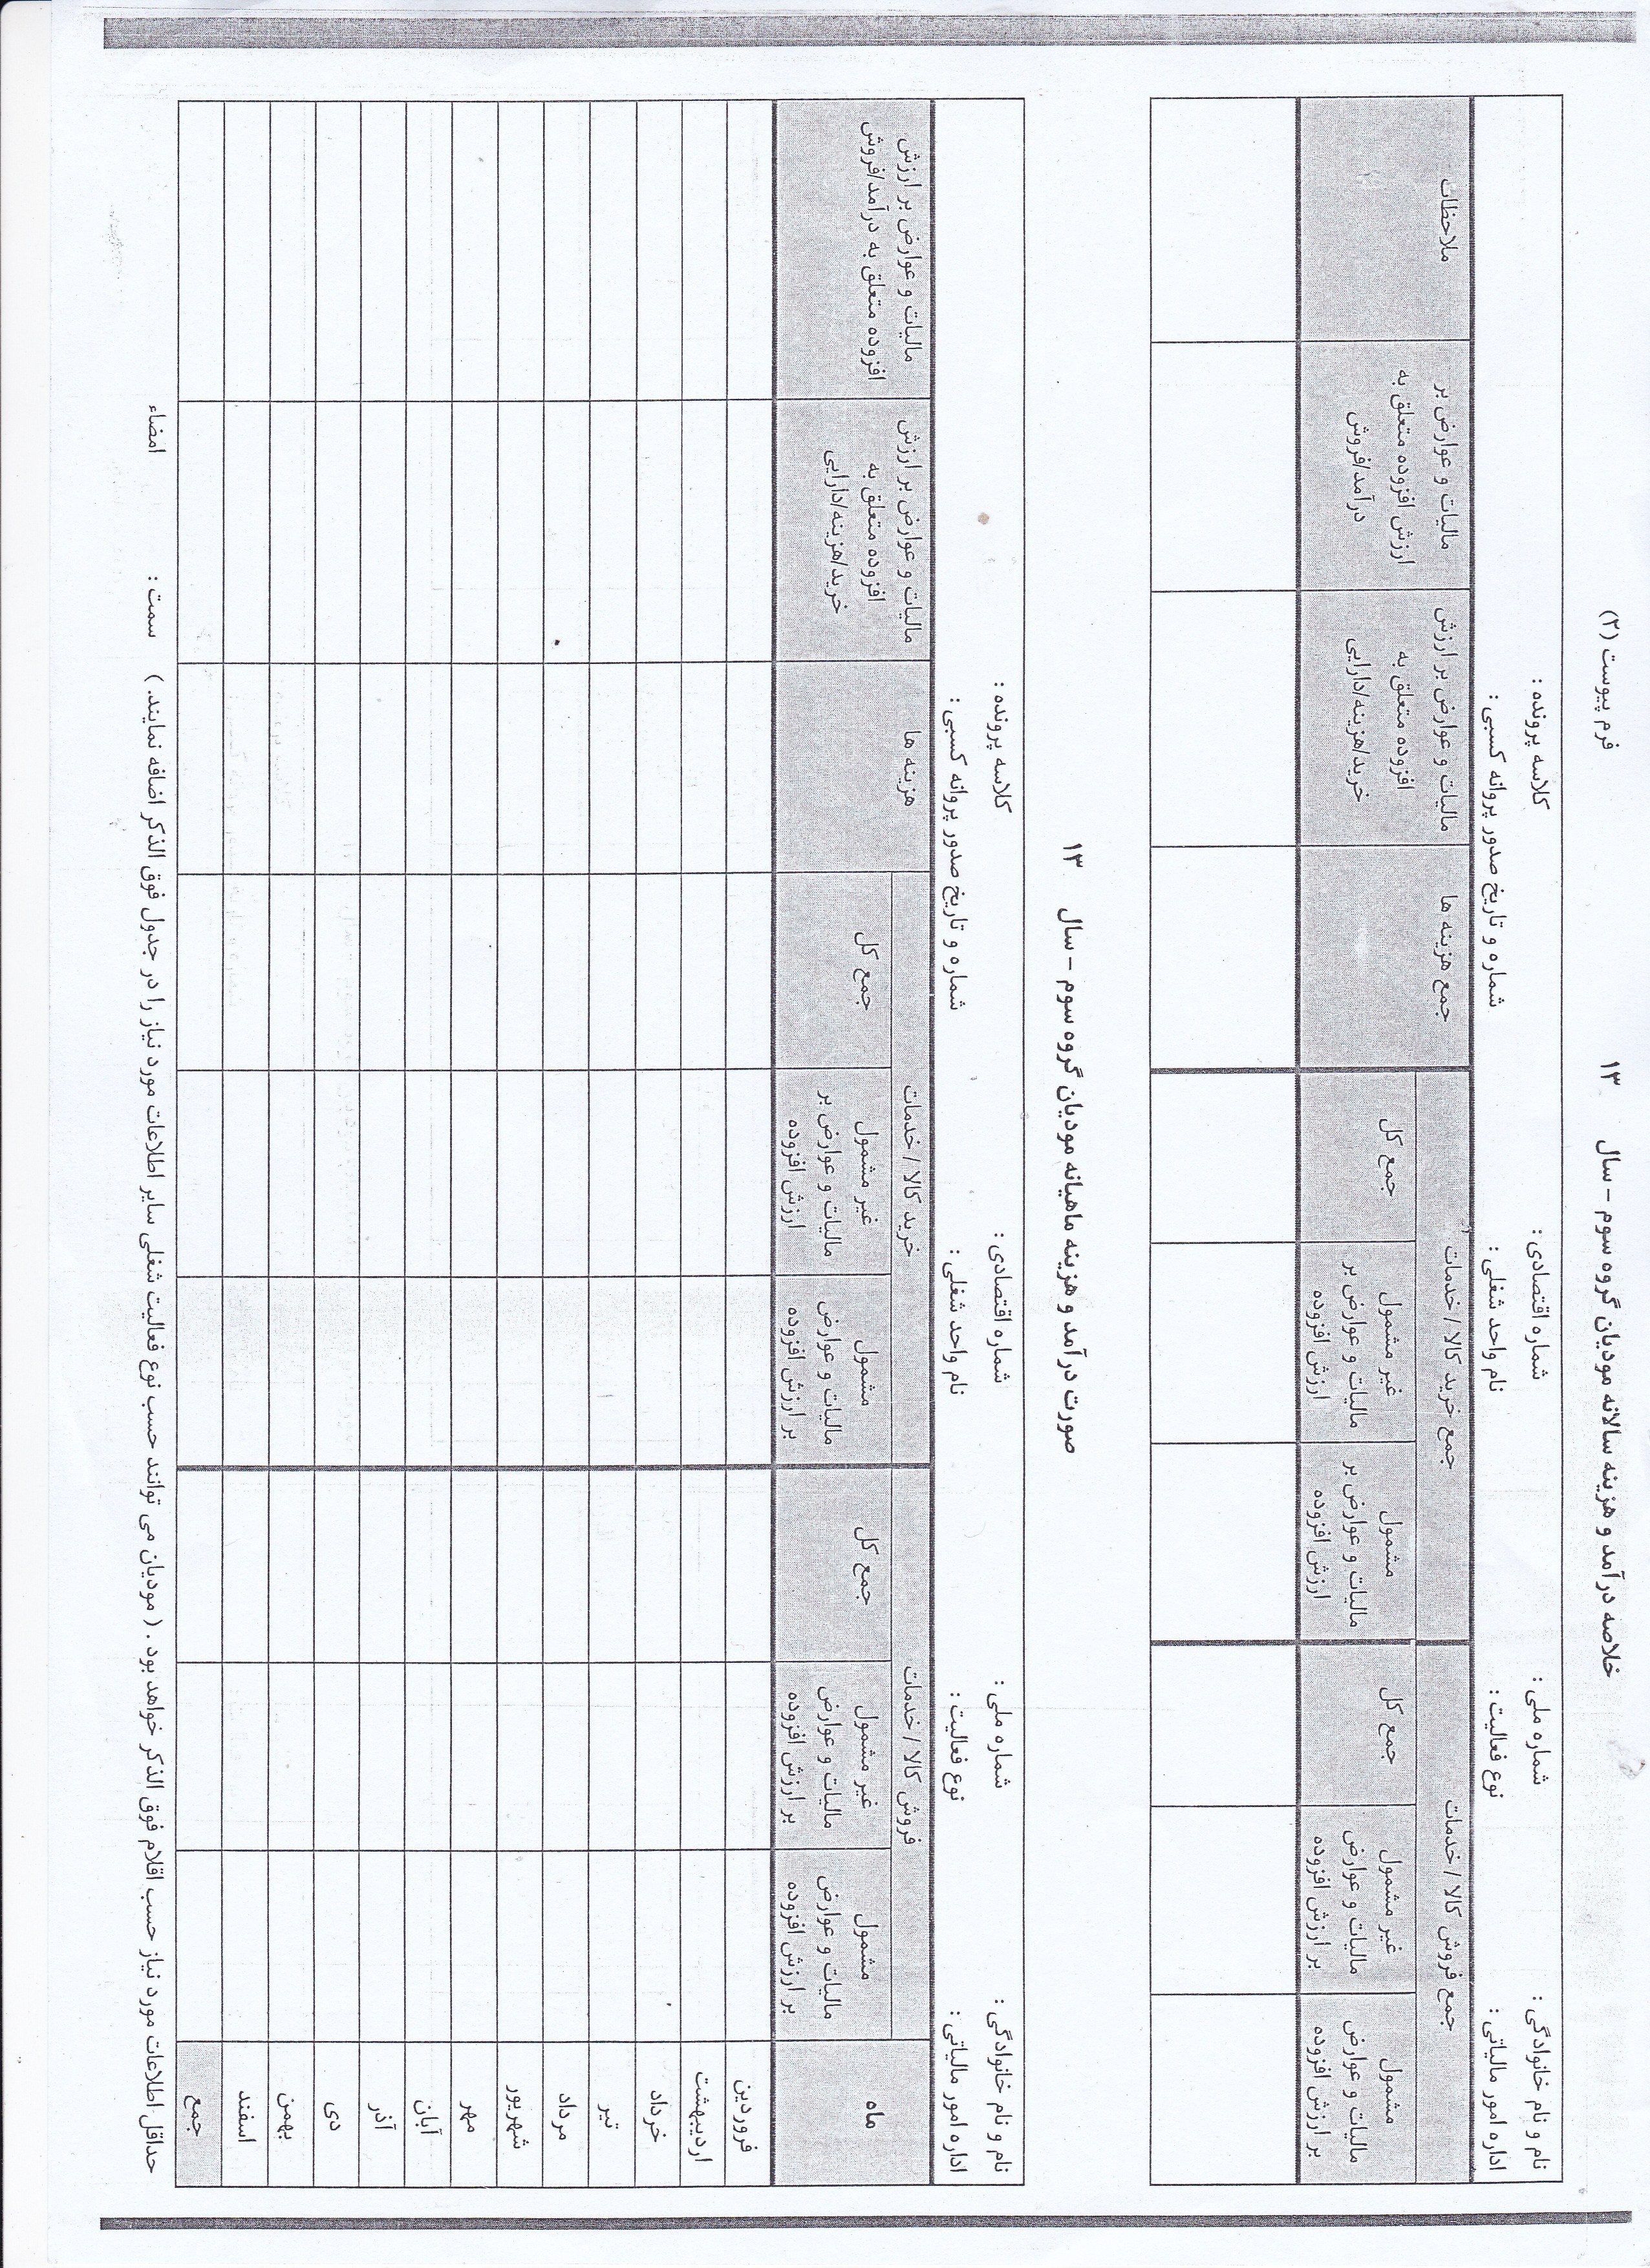 فرم پیوست (۲)
خلاصه درآمد و هزینه سالانه مودیان گروه سوم - سال ۱۳
نام و نام خانوادگی : شماره ملی : شماره اقتصادی : کلاسه پرونده :
اداره امور مالیاتی : نوع فعالیت : نام واحد شغلی : شماره و تاریخ صدور پروانه کسبی :
جمع فروش کالا / خدمات
جمع خرید کالا / خدمات
جمع هزینه ها
مالیات و عوارض بر ارزش
افزوده متعلق به
خرید/هزینه/دارایی
مالیات و عوارض بر
ارزش افزوده متعلق به
درآمد/فروش
ملاحظات
مشمول
مالیات و عوارض
بر ارزش افزوده
غیر مشمول
مالیات و عوارض
بر ارزش افزوده
جمع کل
مشمول
مالیات و عوارض بر
ارزش افزوده
غیر مشمول
مالیات و عوارض بر
ارزش افزوده
جمع کل
صورت درآمد و هزینه ماهیانه مودیان گروه سوم - سال ۱۳
نام و نام خانوادگی : شماره ملی : شماره اقتصادی : کلاسه پرونده :
اداره امور مالیاتی : نوع فعالیت : نام واحد شغلی : شماره و تاریخ صدور پروانه کسبی :
ماه
فروش کالا / خدمات
خرید کالا / خدمات
هزینه ها
مالیات و عوارض بر ارزش
افزوده متعلق به
خرید/هزینه/دارایی
مالیات و عوارض بر ارزش
افزوده متعلق به درآمد/فروش
مشمول
مالیات و عوارض
بر ارزش افزوده
غیر مشمول
مالیات و عوارض
بر ارزش افزوده
جمع کل
مشمول
مالیات و عوارض
بر ارزش افزوده
غیر مشمول
مالیات و عوارض بر
ارزش افزوده
جمع کل
فروردین
اردیبهشت
خرداد
تیر
مرداد
شهریور
مهر
آبان
آذر
دی
بهمن
اسفند
جمع
حداقل اطلاعات مورد نیاز حسب اقلام فوق الذکر خواهد بود . ( مودیان می توانند حسب نوع فعالیت شغلی سایر اطلاعات مورد نیاز را در جدول فوق الذکر اضافه نمایند. ) سمت : امضاء